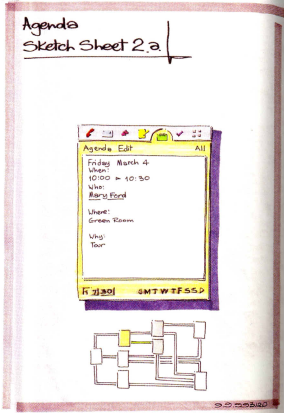 Agenda
Sketch Sheet 2.a
Agenda Edit All
Friday March 4
When:
10:00 ► 10:30
Who:
Mary Ford
Where:
Green Room
Why:
Tour
MTWTFSS